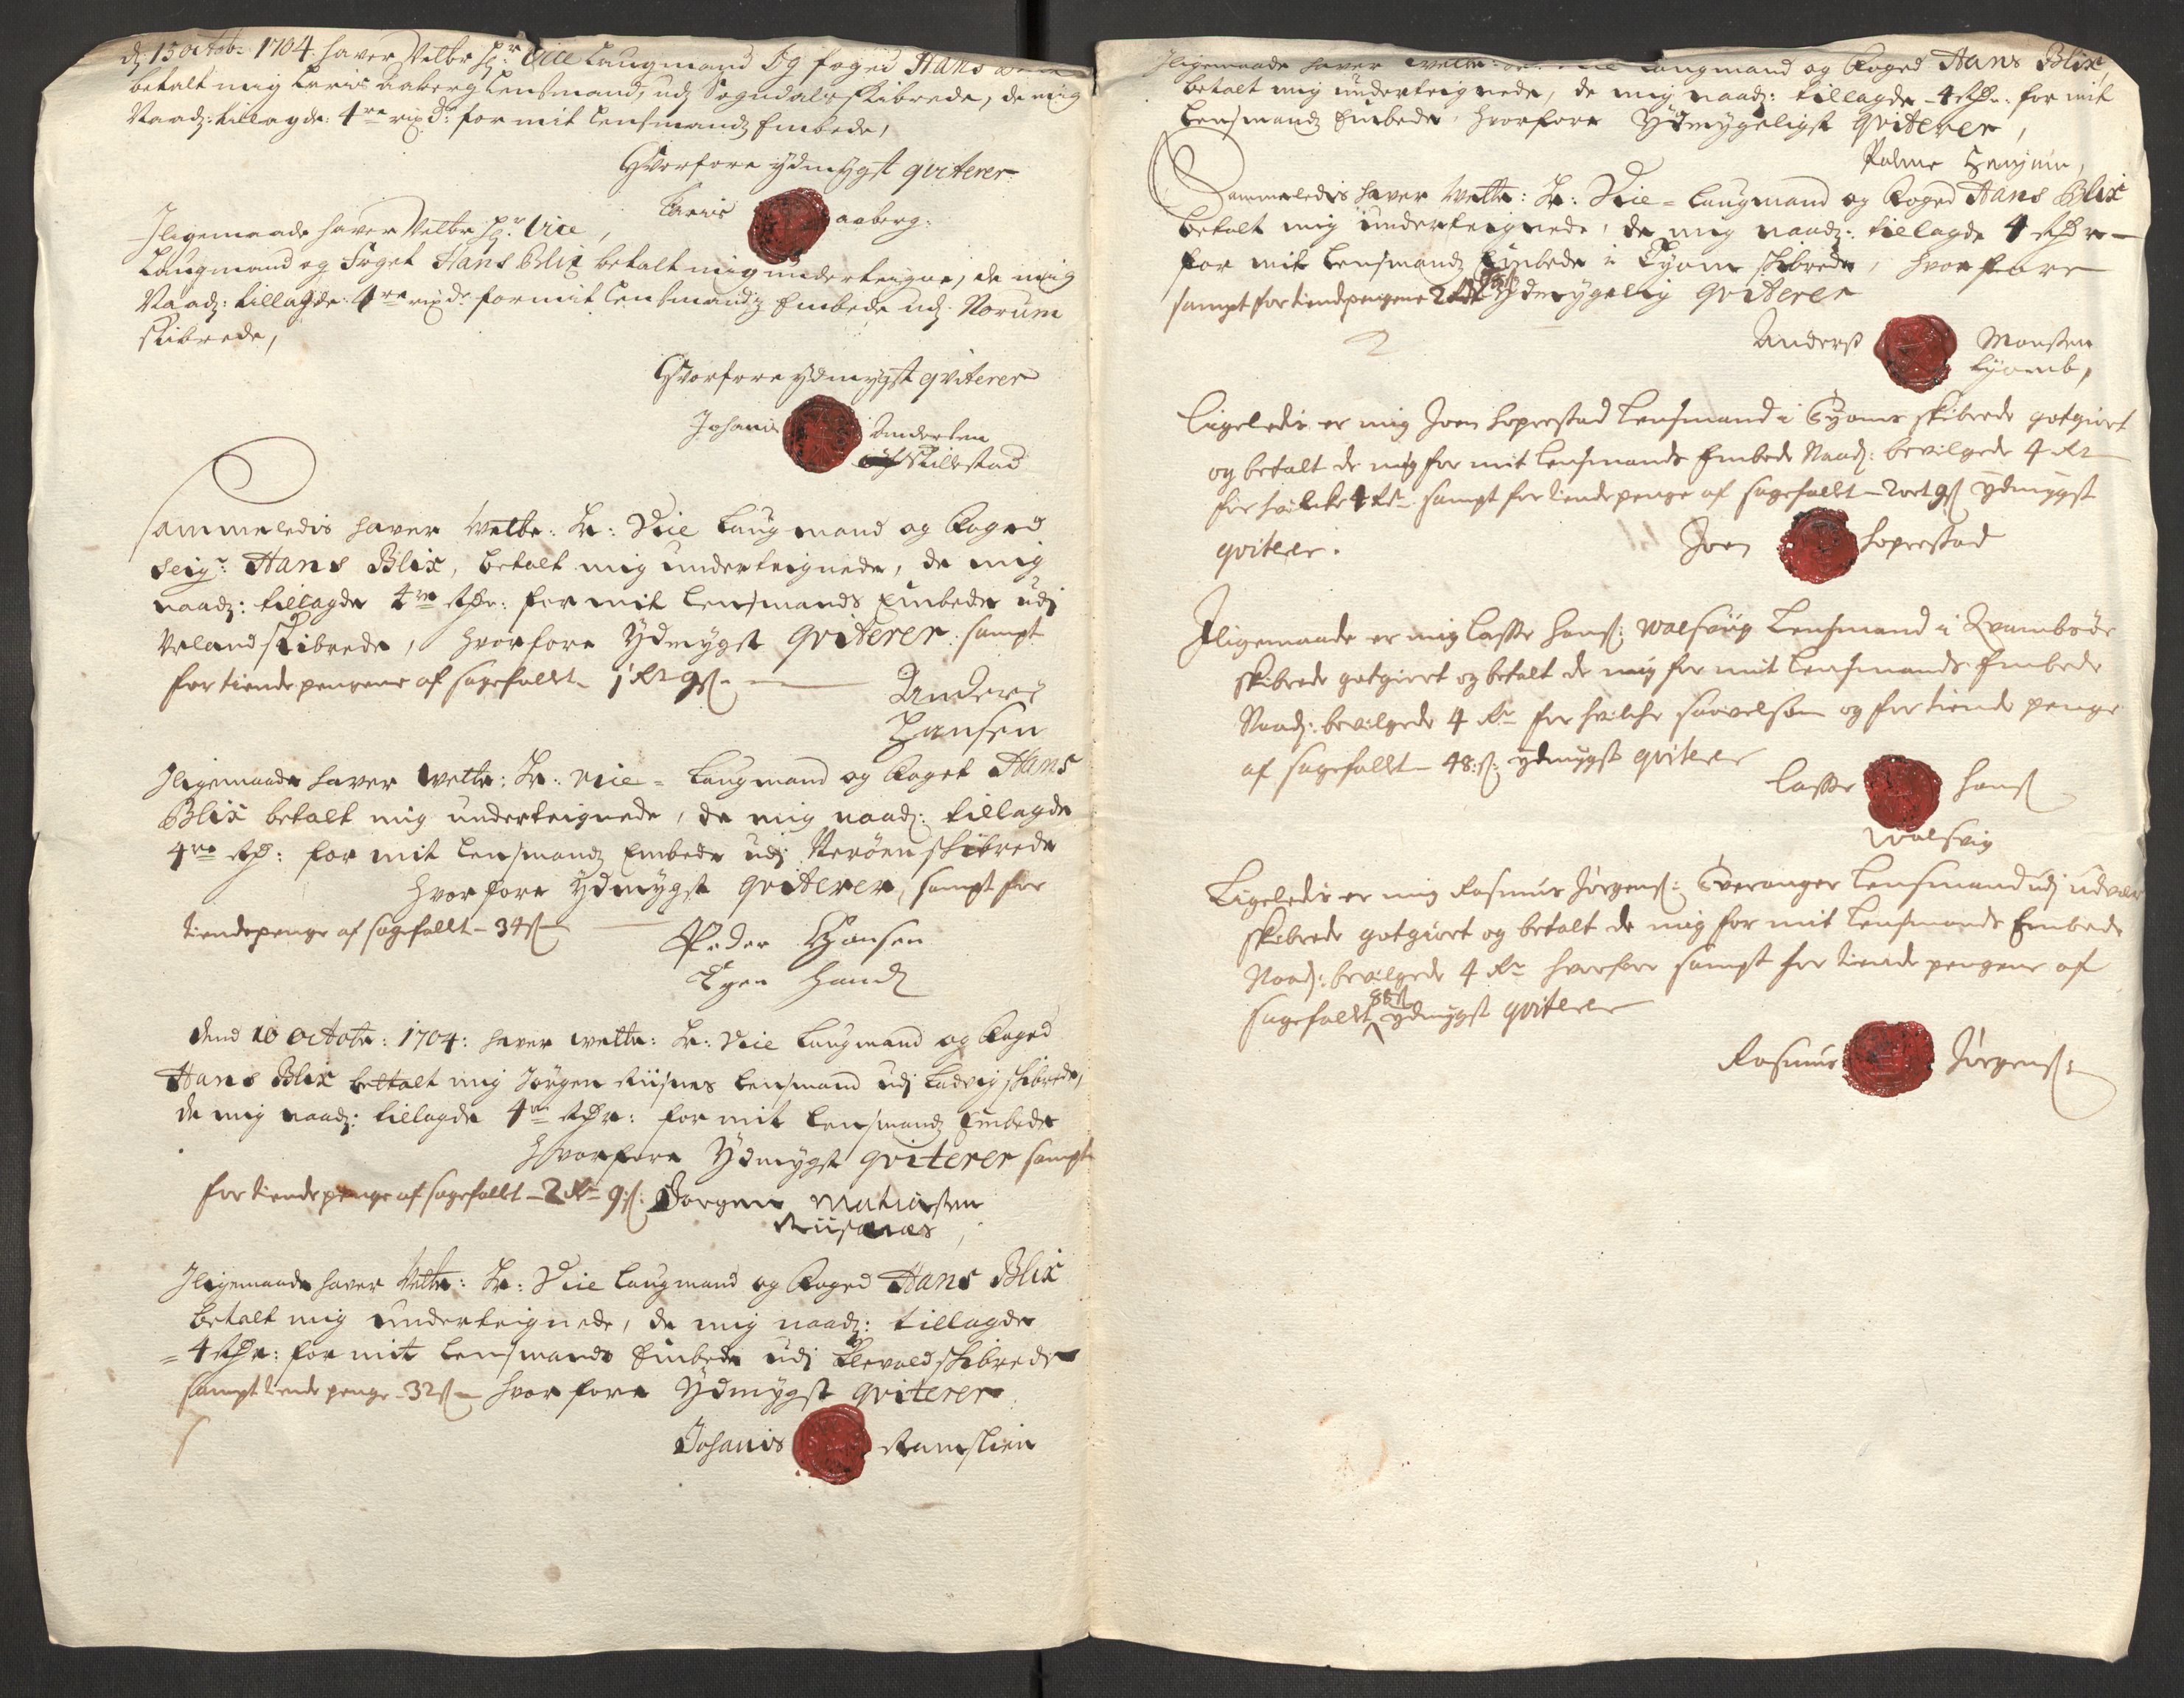 d: 15 octobr: 1704. haver Velbr Hr: Vice Laugmand Og foged Hans
betalt mig Laris aaberg Lensmand, udj Sogndals skibrede, de mig
Naadz: tillagde: 4re rixdr: for mit Lensmandz Embede,
Hvorfore ydmygst qviterer
Laris aaberg:
Jligemaade haver Velbr Hr: Vice
Laugmand og Foget Hans Blix betalt mig underteigne, de mig
Naadz: tillagde: 4re rixdr for mit Lensmandz Embede udj Norum
skibrede,
Hvorfore ydmygst qviterer
Johanis Andersen
Killestad
Sammeledis haver Velbr: Hr: Vice Laugmand og Foged
Seigr: Hans Blix, betalt mig underteignede, de mig
naadz: tillagde 4re Rdr: for mit Lensmands Embede udj
Urland skibrede, hvorfore Ydmygst qviterer: sampt
for tiende pengene af sagefaldt 1 Rdr 9s -
Anders
Hansen
Jligemaade haver Velbr: Hr: Vice = Laugmand og Foget Hans
Blix betalt mig underteignede, de mig naadz: tillagde
4re Rdr: for mit Lensmandz Embede udj Verøen skibrede
hvorfore Ydmygst qviterer, sampt for
tiendepenge af sagefaldt - 34s
Peder Hansen
Egen Handz
dend 16 octobr: 1704: haver Velbr: Hr: Vice Laugmand og Foged
Hans Blix bettalt mig Jørgen Riisnes Lensmand udj Ladvig skibrede,
de mig naadz: tillagde 4re Rdr: for mit Lensmandz Embede
hvorfore Ydmygst qviterer sampt
for tiendepenge af sagefaldt - 2 Rdr 9s: Jørgen Matiasen
Riisnæs
Jligemaade haver Velbr: Hr: Vice Laugmand og Foged Hans Blix
betalt mig underteignede, de mig naadz: tillagde
= 4 Rdr: for mit Lensmands Embede udj Klevold skibrede
sampt tiende penge - 32s - hvorfore Ydmygst qviterer
Johanis Ramslien
Jligemaade haver Velbr: Laugmand og Foged Hans Blix,
betalt mig underteignede, de mig naadz: tillagde 4 Rdr: for mit
Lensmandz Embede, hvorfore Ydmygeligst qviterer,
Sammeledis haver Velbr: Hr: Vice = Laugmand og Foged Hans Blix
betalt mig underteignede, de mig naadz: tillagde 4 Rdr
for mit Lensmandz Embede i Kyom skibrede, hvorfore
sampt for tiendpengene Ydmygelig qviterer
Anders Monsen
Ligeledis er mig Joen Hoprestad Lensmand i skibrede gotgiort
og betalt de mig for mit Lensmands Embede Naadz: bevilgede 4 Rdr
for hvilche 4 Rdr sampt for tiendepenge af sagefaldt - 2 ort 9s ydmygst
qviterer.
Joen Hoprestad
Jligemaade er mig Lasse Hans: Walsviig Lensmand i Qvambsøe
skibrede gotgiort og betalt de mig for mit Lensmands Embede
Naadz: bevilgede 4 Rdr for hvilche saavelsom og for tiende penge
af sagefaldt - 48:s: ydmygst qviterer
Lasse Hans
Walsvig
Ligeledis er mig Rasmus Jørgens: Sveranger Lensmand udj udvær
skibrede gotgiort og betalt de mig for mit Lensmands Embede
Naadz: bevilgede 4 Rdr hvorfore sampt for tiende pengene af
sagefaldt ydmygst qviterer
Rasmus Jørgens: